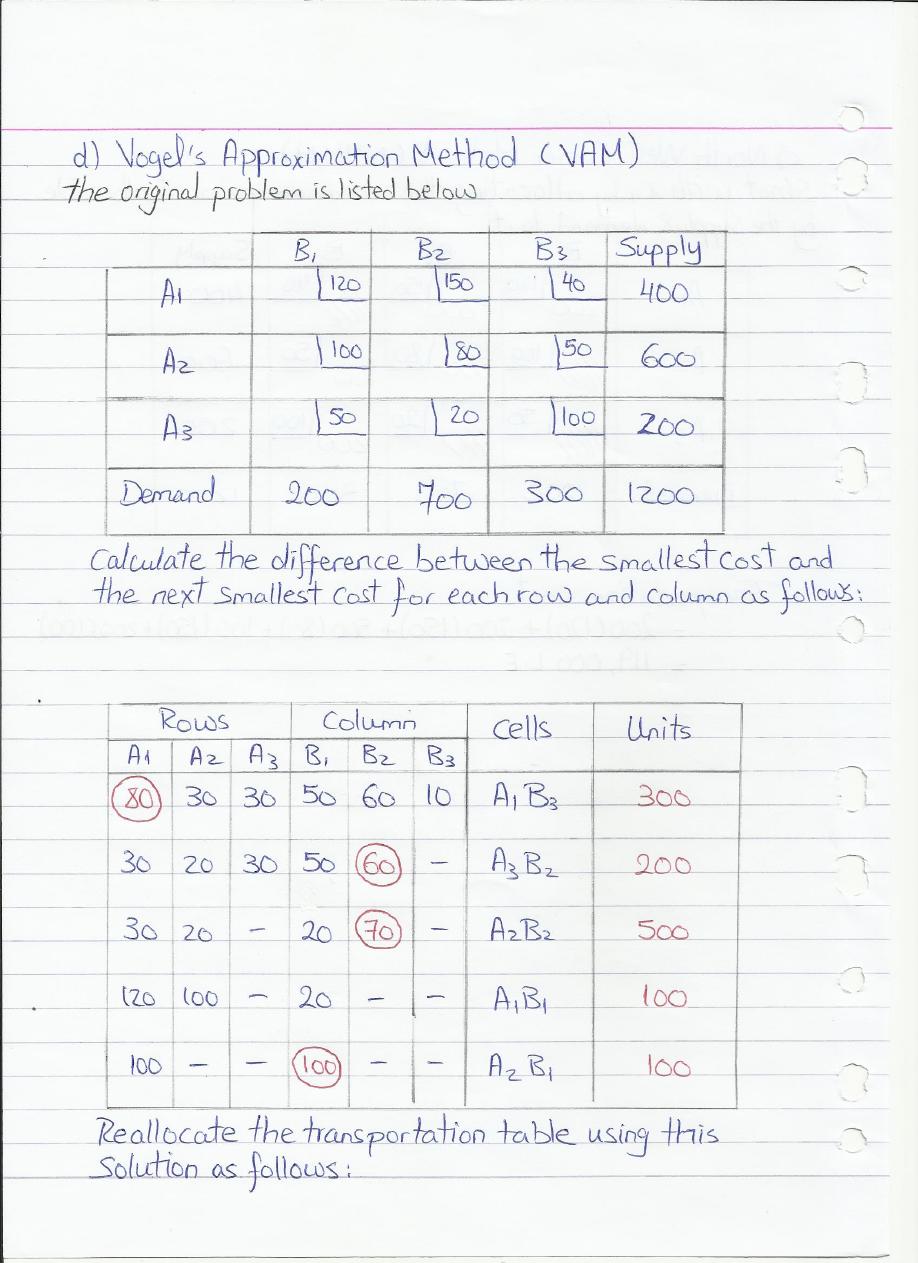 d) Vogel's Approximation Method (VAM)
the original problem is listed below
B1 B2 B3 Supply
A1 120 150 40 400
A2 100 80 50 600
A3 50 20 100 200
Demand 200 700 300 1200
Calculate the difference between the smallest cost and
the next smallest cost for each row and column as follows:
Rows Column Cells Units
A1 A2 A3 B1 B2 B3
80 30 30 50 60 10 A1B3 300
30 20 30 50 60 - A3B2 200
30 20 - 20 70 - A2B2 500
120 100 - 20 - - A1B1 100
100 - - 100 - - A2B1 100
Reallocate the transportation table using this
solution as follows: